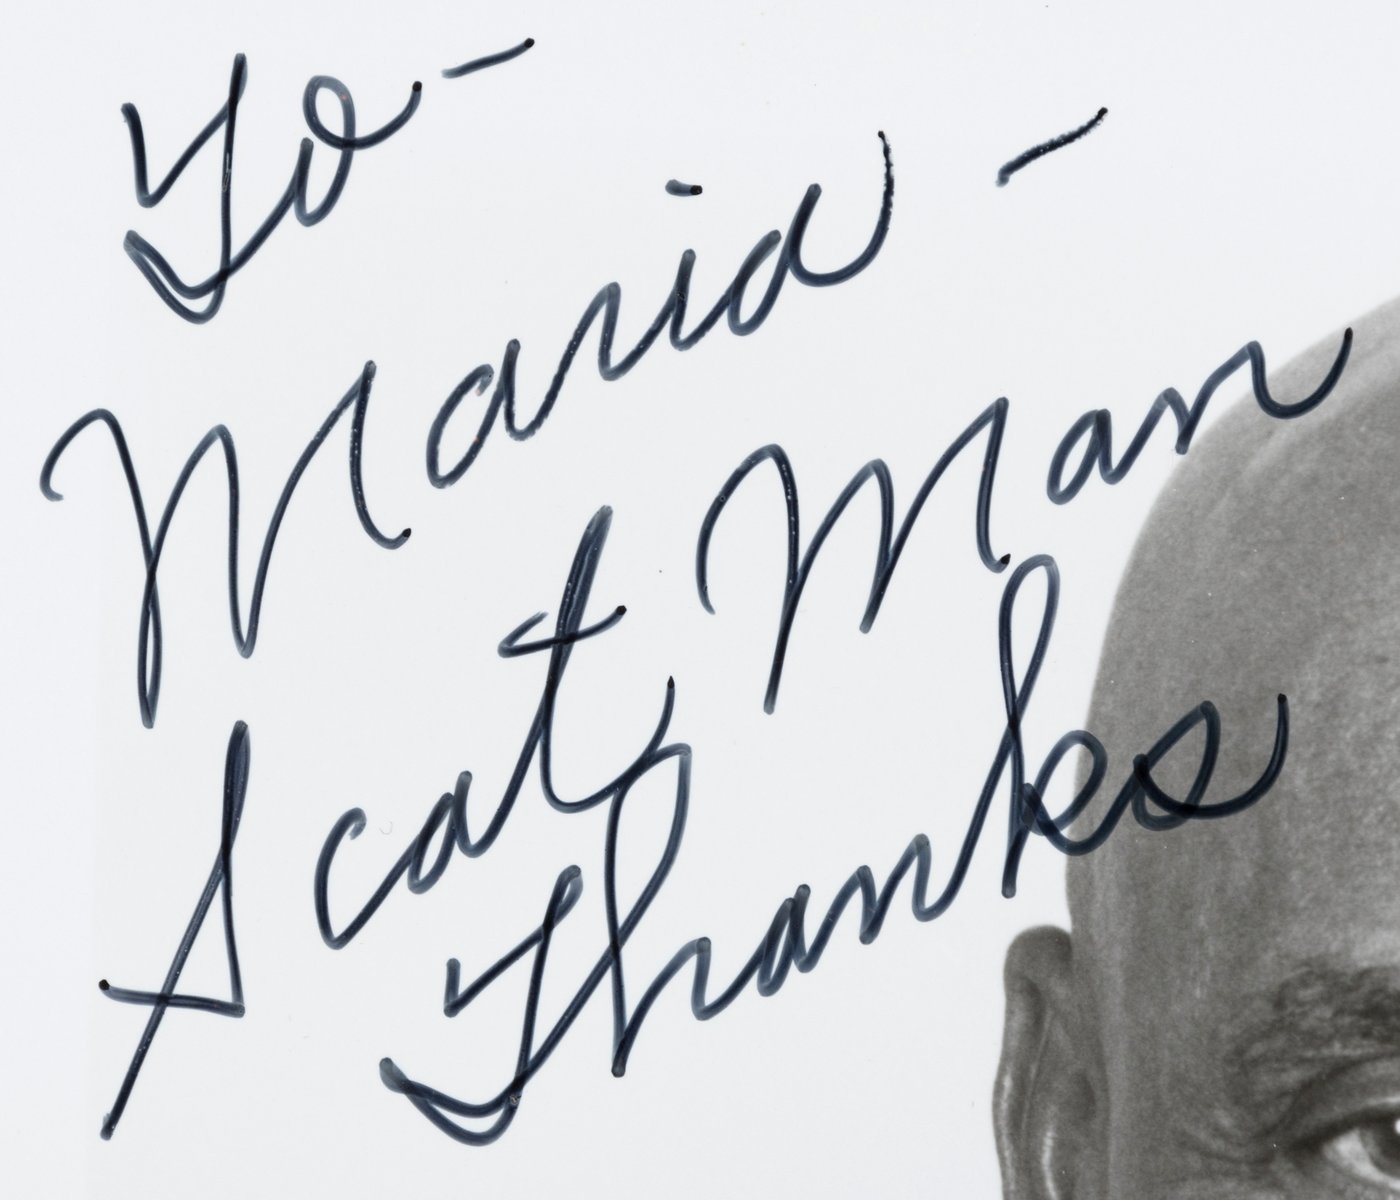 To -
Maria -
Scat Man
Thanks